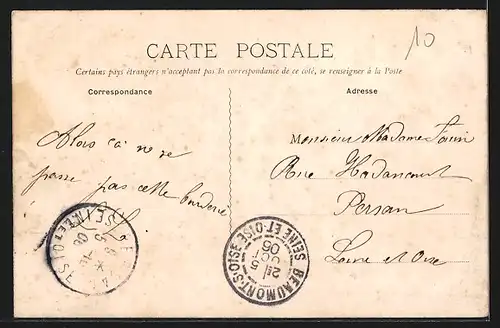 10
CARTE POSTALE
Certains pays étrangers n'acceptant pas la correspondance de ce côté, se renseigner à la Poste
Correspondance
Adresse
Alors ça ne se
passe pas cette
Monsieur Madame
Rue Hadancourt
Persan
Seine et Oise
SEINE ET OISE
BEAUMONT-S-OISE
SEINE ET OISE
05